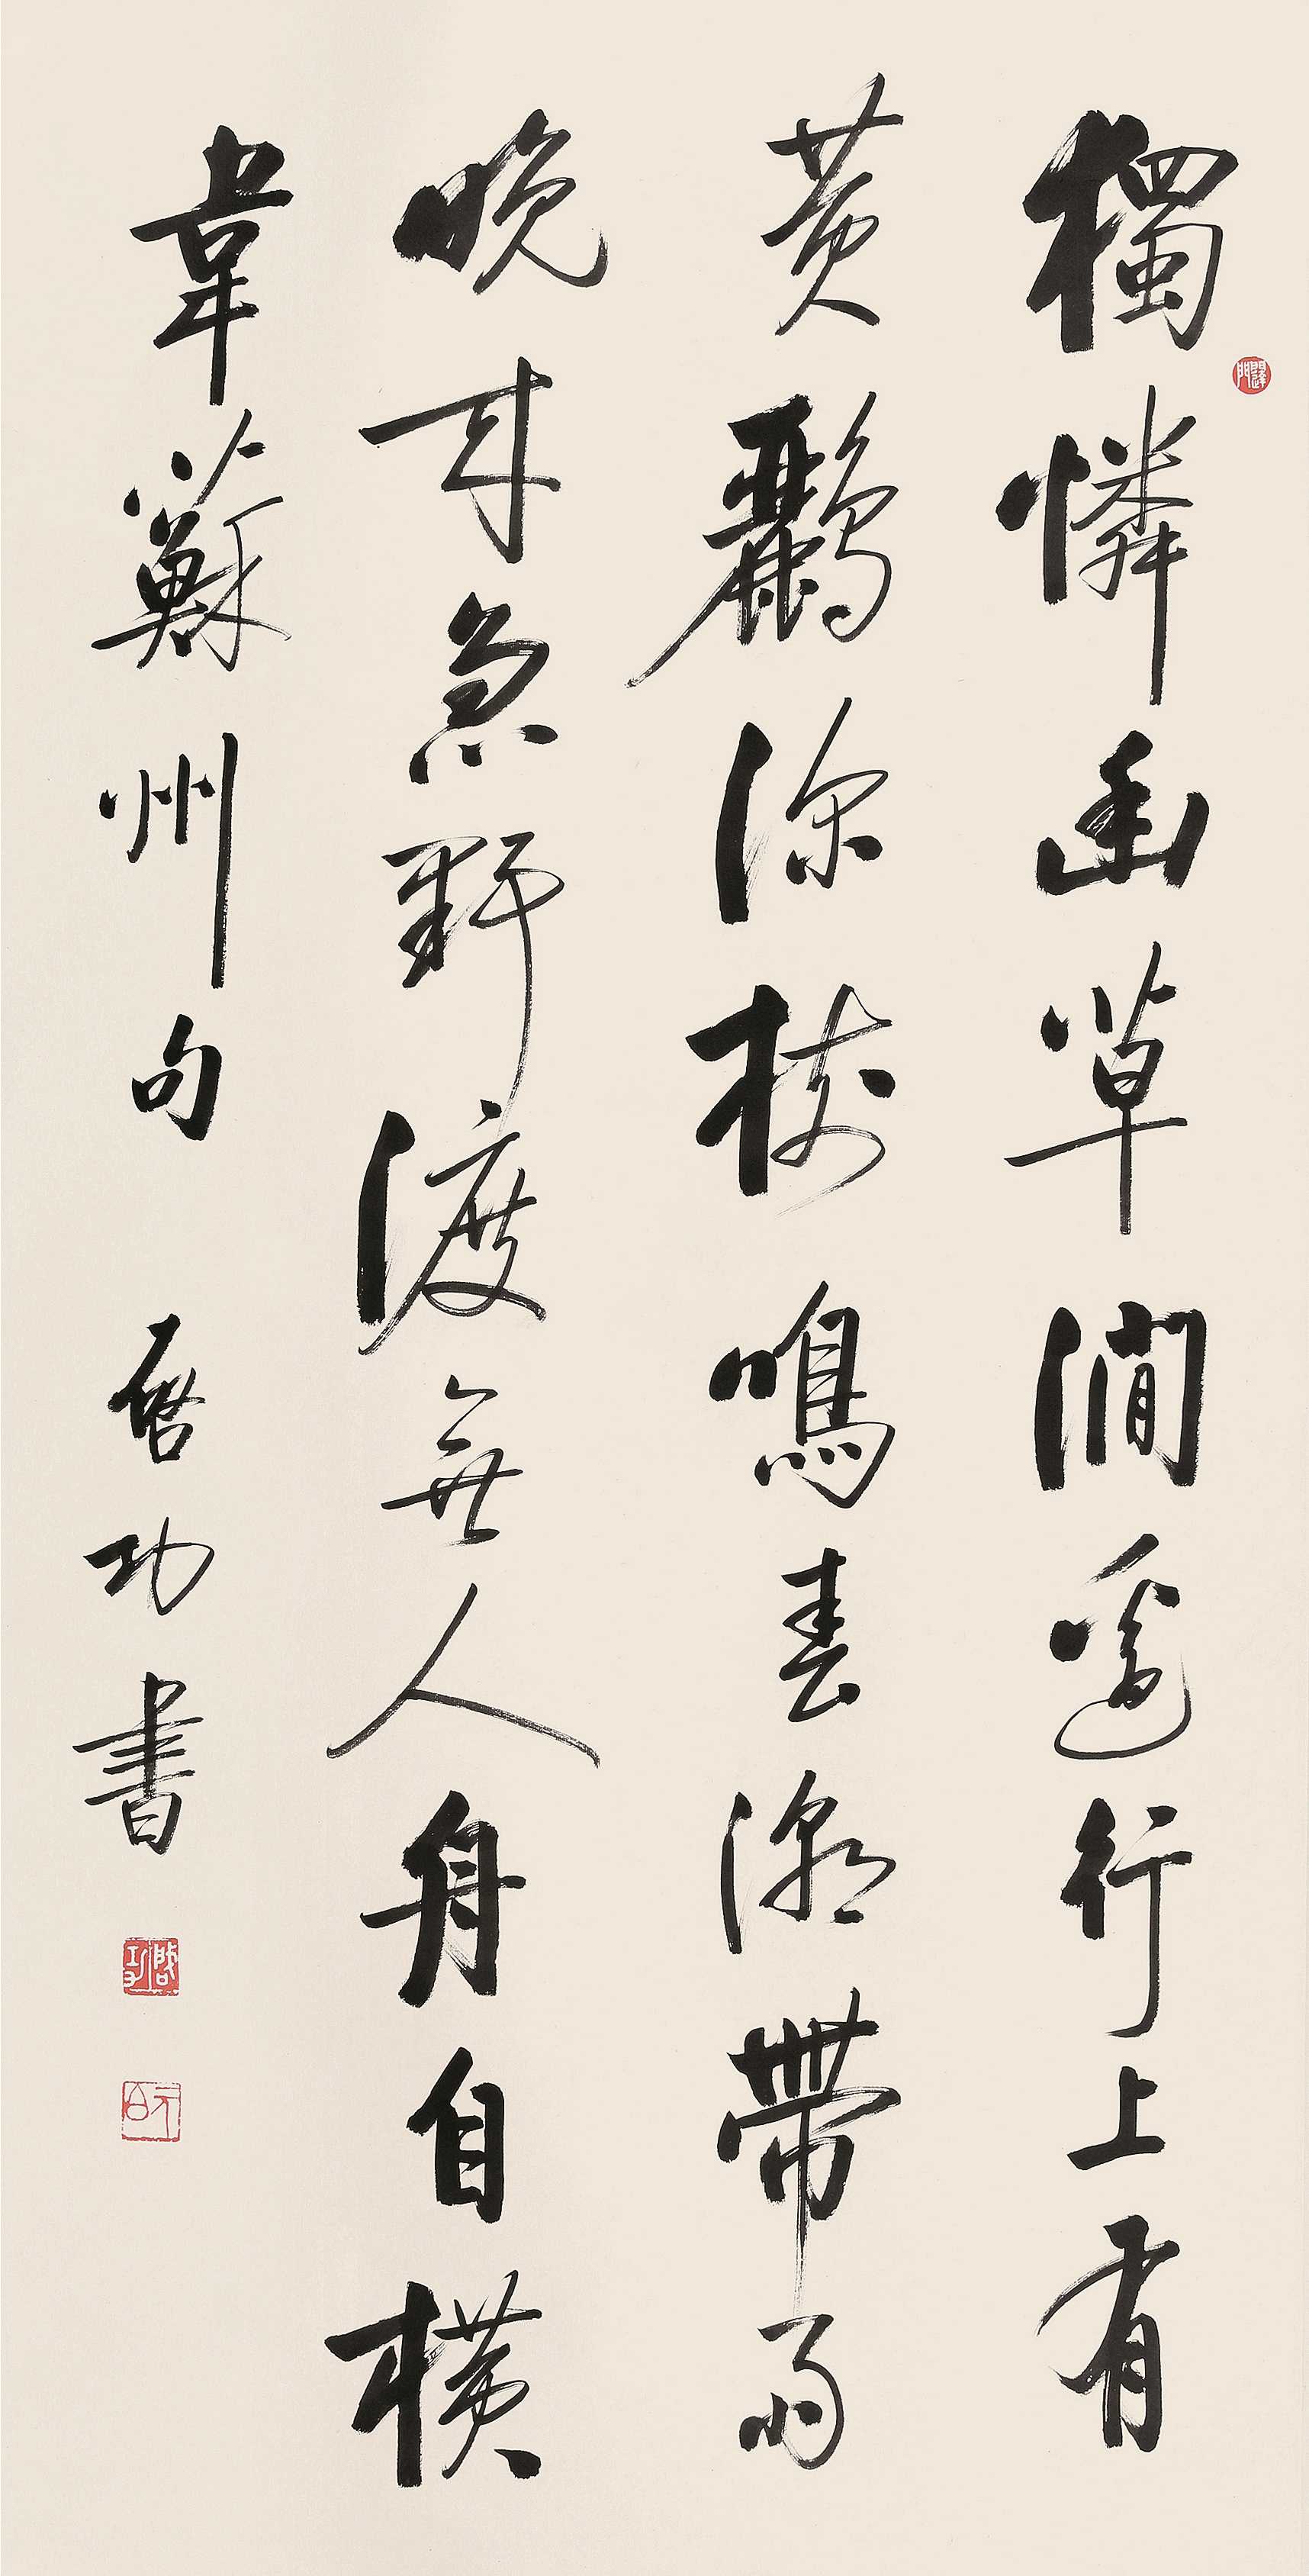 獨憐幽草澗邊行上有
黃鸝深樹鳴春潮帶雨
晚來急野渡無人舟自橫
韋蘇州句 啓功書
啓功
元白